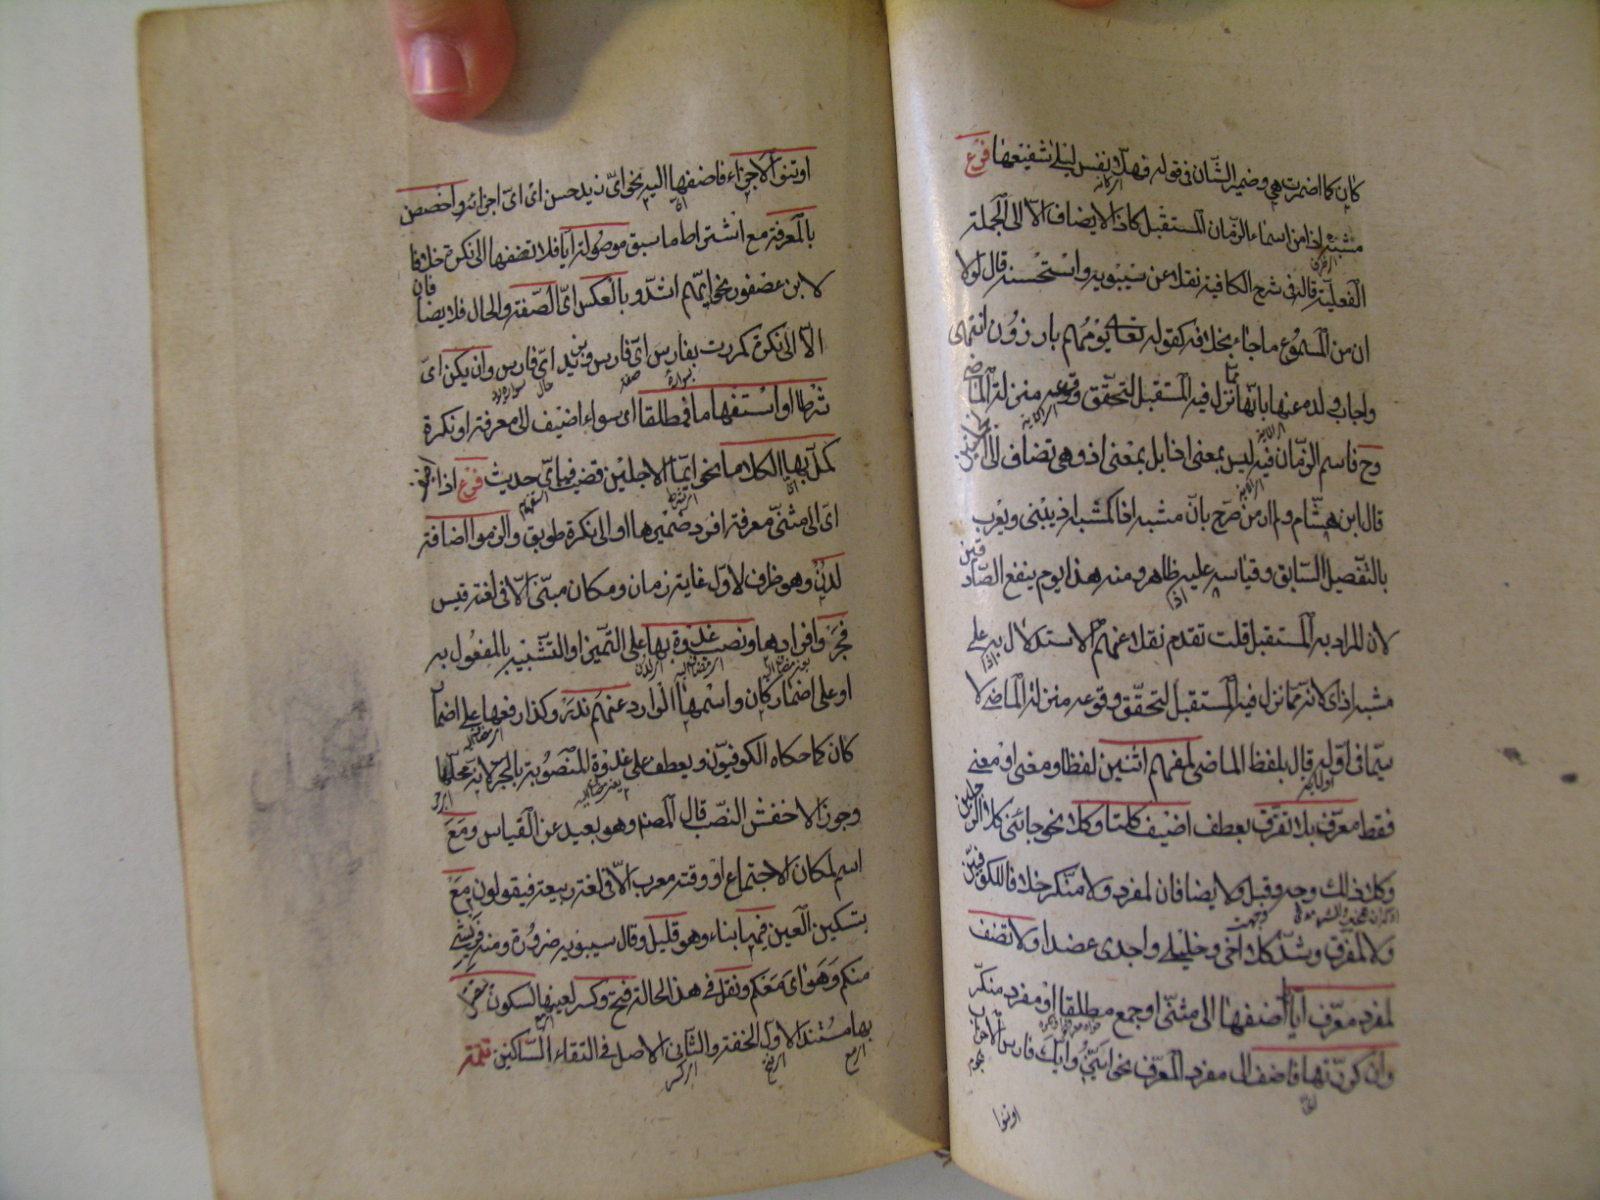 كان كما اضمرت هي وضمير الشان في قوله فهلا نفس ليلى شفيعها فرع
مشبه اذا من اسماء الزمان المستقبل كاذا لا يضاف الا الى الجملة
الفعلية قاله في شرح الكافية نقلا عن سيبويه واستحسنه قال لولا
ان من المسموع ما جاء بخلافه كقوله تعالى يوم هم بارزون انتهى
واجاب ولده عنها بانها نزل فيه المستقبل لتحقق وقوعه منزلة الماضي
وح فاسم الزمان فيه ليس بمعنى اذا بل بمعنى اذ وهي تضاف الى الجملتين
قال ابن هشام ولم ار من صرح بان مشبه اذا كمشبه اذ يبنى ويعرب
بالتفصيل السابق وقياسه عليه ظاهر ومنه هذا يوم ينفع الصادقين
لان المراد به المستقبل قلت تقدم نقلا عنهم الاستدلال به على
مشبه اذ اي لانه مما نزل فيه المستقبل لتحقق وقوعه منزلة الماضي لا
سيما في اوله قال بلفظ الماضي لمفهم اثنين لفظا ومعنى او معنى
فقط معرف بلا تفرق بعطف اضيف كلتا وكلا نحو جائني كلا الرجلين
وكلا ذلك وجه وقبل ولا يضافان لمفرد ولا منكر خلافا للكوفيين
ولا لمفرق وشذ كلا اخي وخليلي واجدى عضدا ولا تضف
لمفرد معرف ايا اضفها الى مثنى او جمع مطلقا او مفرد منكر
وان كررتها فاضف الى مفرد المعرف نحو ايي وايك فارس الاحزاب
او تنوا
او تنو الاجزاء فاضفها اليه نحو اي زيد حسن اي اي اجزائه واخصصن
بالمعرفة مع اشتراط ما سبق موصولة ايا فلا تضفها الى نكرة خلافا
لابن عصفور نحو ايهم اشد وبالعكس اي الصفة والحال فلا يضافان
الا الى نكرة كمررت بفارس اي فارس وبزيد اي فارس وان يكن اي
شرطا او استفهاما فمطلقا اي سواء اضيف الى معرفة او نكرة
كمل بها الكلاما نحو ايما الاجلين قضيت فباي حديث فرع اذا اضيفت
اي الى مثنى معرفة افرد ضميرها او الى نكرة طوبق والزموا اضافة
لدن وهو ظرف لاول غاية زمان ومكان مبني الا في لغة قيس
فجر وافرادها ونصب غدوة بها على التميز او التشبيه بالمفعول به
او على اضمار كان واسمها الوارد عنهم ندر وكذا رفعها على اضمار
كان كما حكاه الكوفيون ويعطف على غدوة المنصوبة بالجر لانه محلها
وجوز الاخفش النصب قال المصنف وهو بعيد عن القياس ومع
اسم لمكان الاجتماع او وقته معرب الا في لغة ربيعة فيقولون مع
بتسكين العين فيها بناء وهو قليل وقال سيبويه ضرورة ومنه فريشي
منكم وهواي معكم ونقل في هذا الحالة فتح وكسر لعينها لسكون يتصل
بها مستند الاول الخفة والثاني الاصل في التقاء الساكنين تتمة